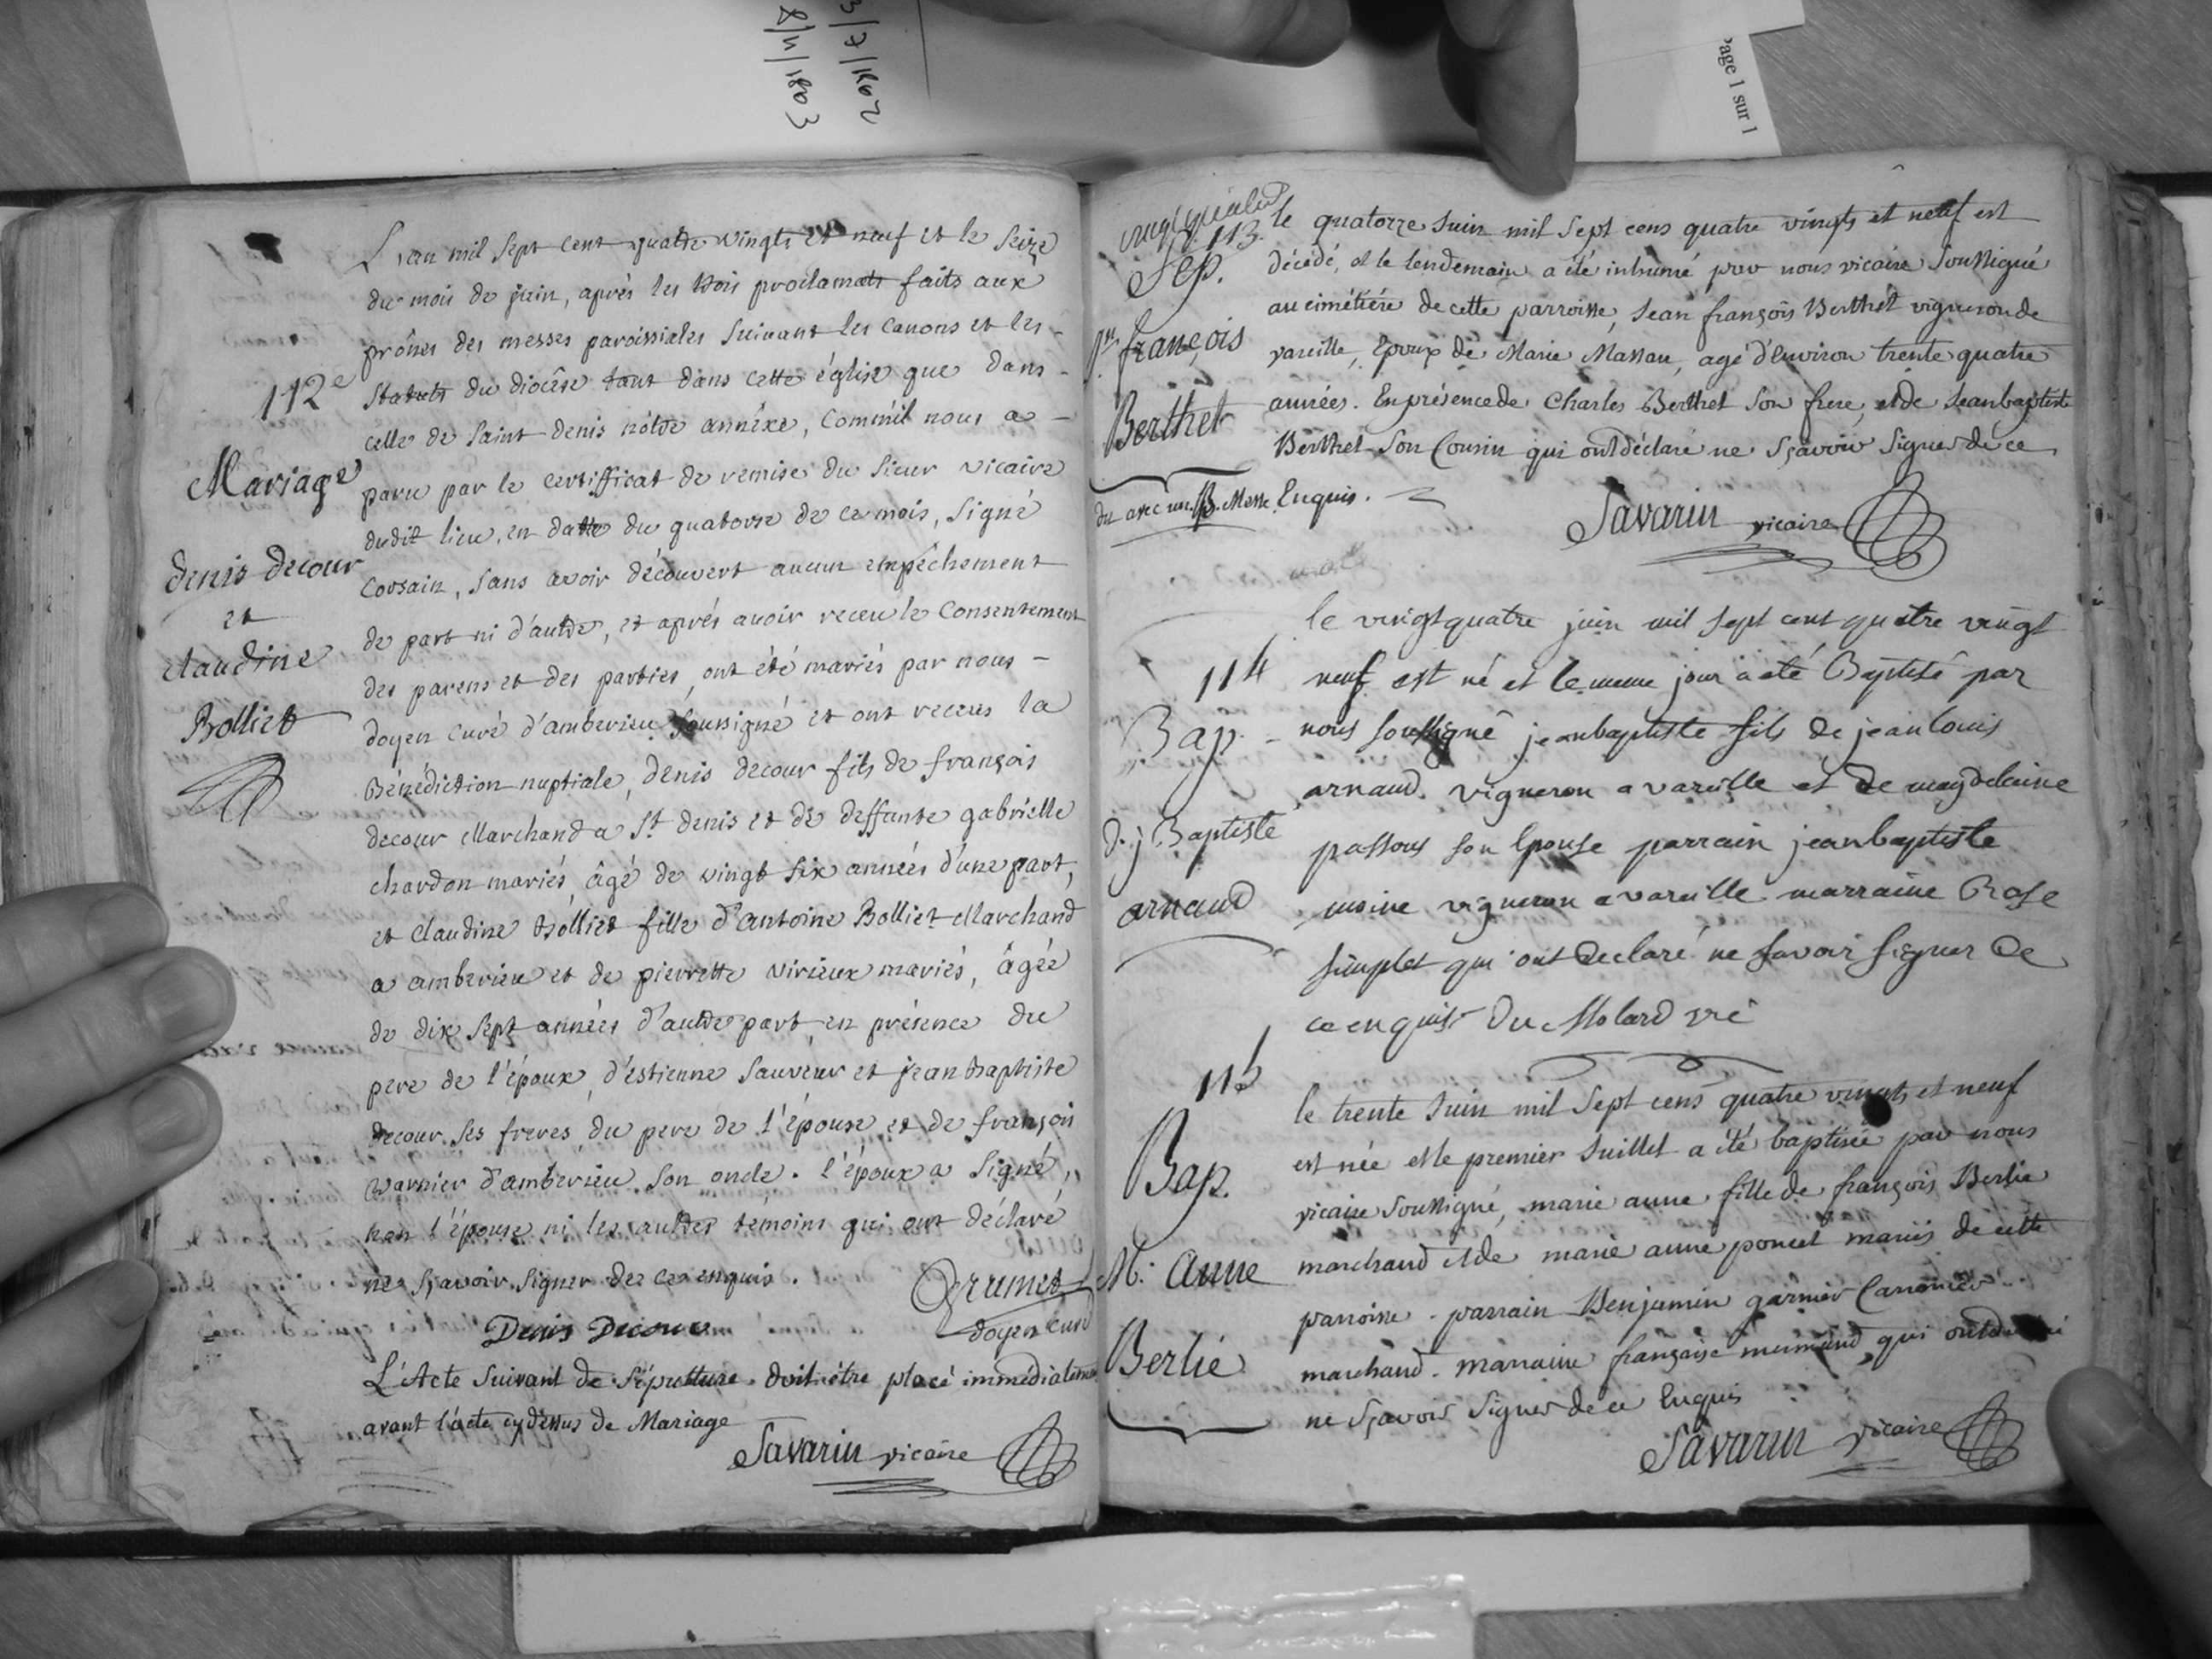 3/7/1802
8/11/1803
Page 1 sur 1
L'an mil Sept cent quatre vingts et neuf et le Seize
du mois de juin, après les trois proclamats faits aux
prônes des messes paroissiales Suivant les Canons et les
Statuts du diocêse tant dans cette église que dans
celle de Saint denis nôtre annéxe, comm'il nous a
paru par le certifficat de remise du Sieur vicaire
dudit lieu, en datte du quatorze de ce mois, Signé
Corsain, Sans avoir découvert aucun empêchement
de part ni d'autre, et aprés avoir receu le Consentement
des parens et des parties, ont été mariés par nous
doyen Curé d'amberieu Soussigné et ont receus la
Bénédiction nuptiale, denis decour fils de françois
decour Marchand a St denis et de deffunte gabrielle
chardon mariés âgé de vingt Six années d'une part,
et Claudine Bolliet fille d'antoine Bolliet Marchand
a amberieu et de pierrette virieux mariés, âgée
de dix Sept années d'autre part en présence du
pere de l'époux, d'éstienne Sauveur et jean Baptiste
decour Ses freres, du pere de l'épouse et de françois
Warnier d'amberieu Son oncle. l'époux a Signé,
non l'épouse ni les autres témoins qui ont déclaré
ne Sçavoir Signer de ce enquis.
Denis Decour
Grumet
doyen curé
L'Acte Suivant de Sépulture doit être placé immédiatement
avant l'acte cydessus de Mariage
Savarin vicaire
112e
Mariage
denis decour
et
Claudine
Bolliet
113.
Sep.
jn françois
Berthet
le quatorze Juin mil Sept cens quatre vingts et neuf est
décédé, et le lendemain a été inhumé par nous vicaire Soussigné
au cimétiére de cette parroisse, Jean françois Berthet vigneron de
vareille, Epoux de Marie Massau, agé d'Environ trente quatre
années. En présence de Charles Berthet Son frere, et de Jean baptiste
Berthet Son Cousin qui ont déclaré ne Sçavoir Signer de ce
Enquis.
Savarin vicaire
114
Bap.
d. j. Baptiste
arnaud
le vingt quatre juin mil sept cent quatre vingt
neuf est né et le meme jour a été Baptisé par
nous soussigné jean baptiste fils de jean louis
arnaud vigneron a vareille et de magdeleine
passous son Epouse parrain jean baptiste
moine vigneron a vareille marraine Rose
simplet qui ont declaré ne savoir signer de
ce enquis Du Molard vre
115
Bap.
M. Anne
Berlie
le trente Juin mil Sept cens quatre vingts et neuf
est née et le premier Juillet a été baptisée par nous
vicaire Soussigné, marie anne fille de françois Berlie
marchand et de marie anne poncet mariés de cette
parroisse. parrain Benjamin garnier Canonier
marchand. marraine françoise
ne Sçavoir Signer de ce Enquis
Savarin vicaire